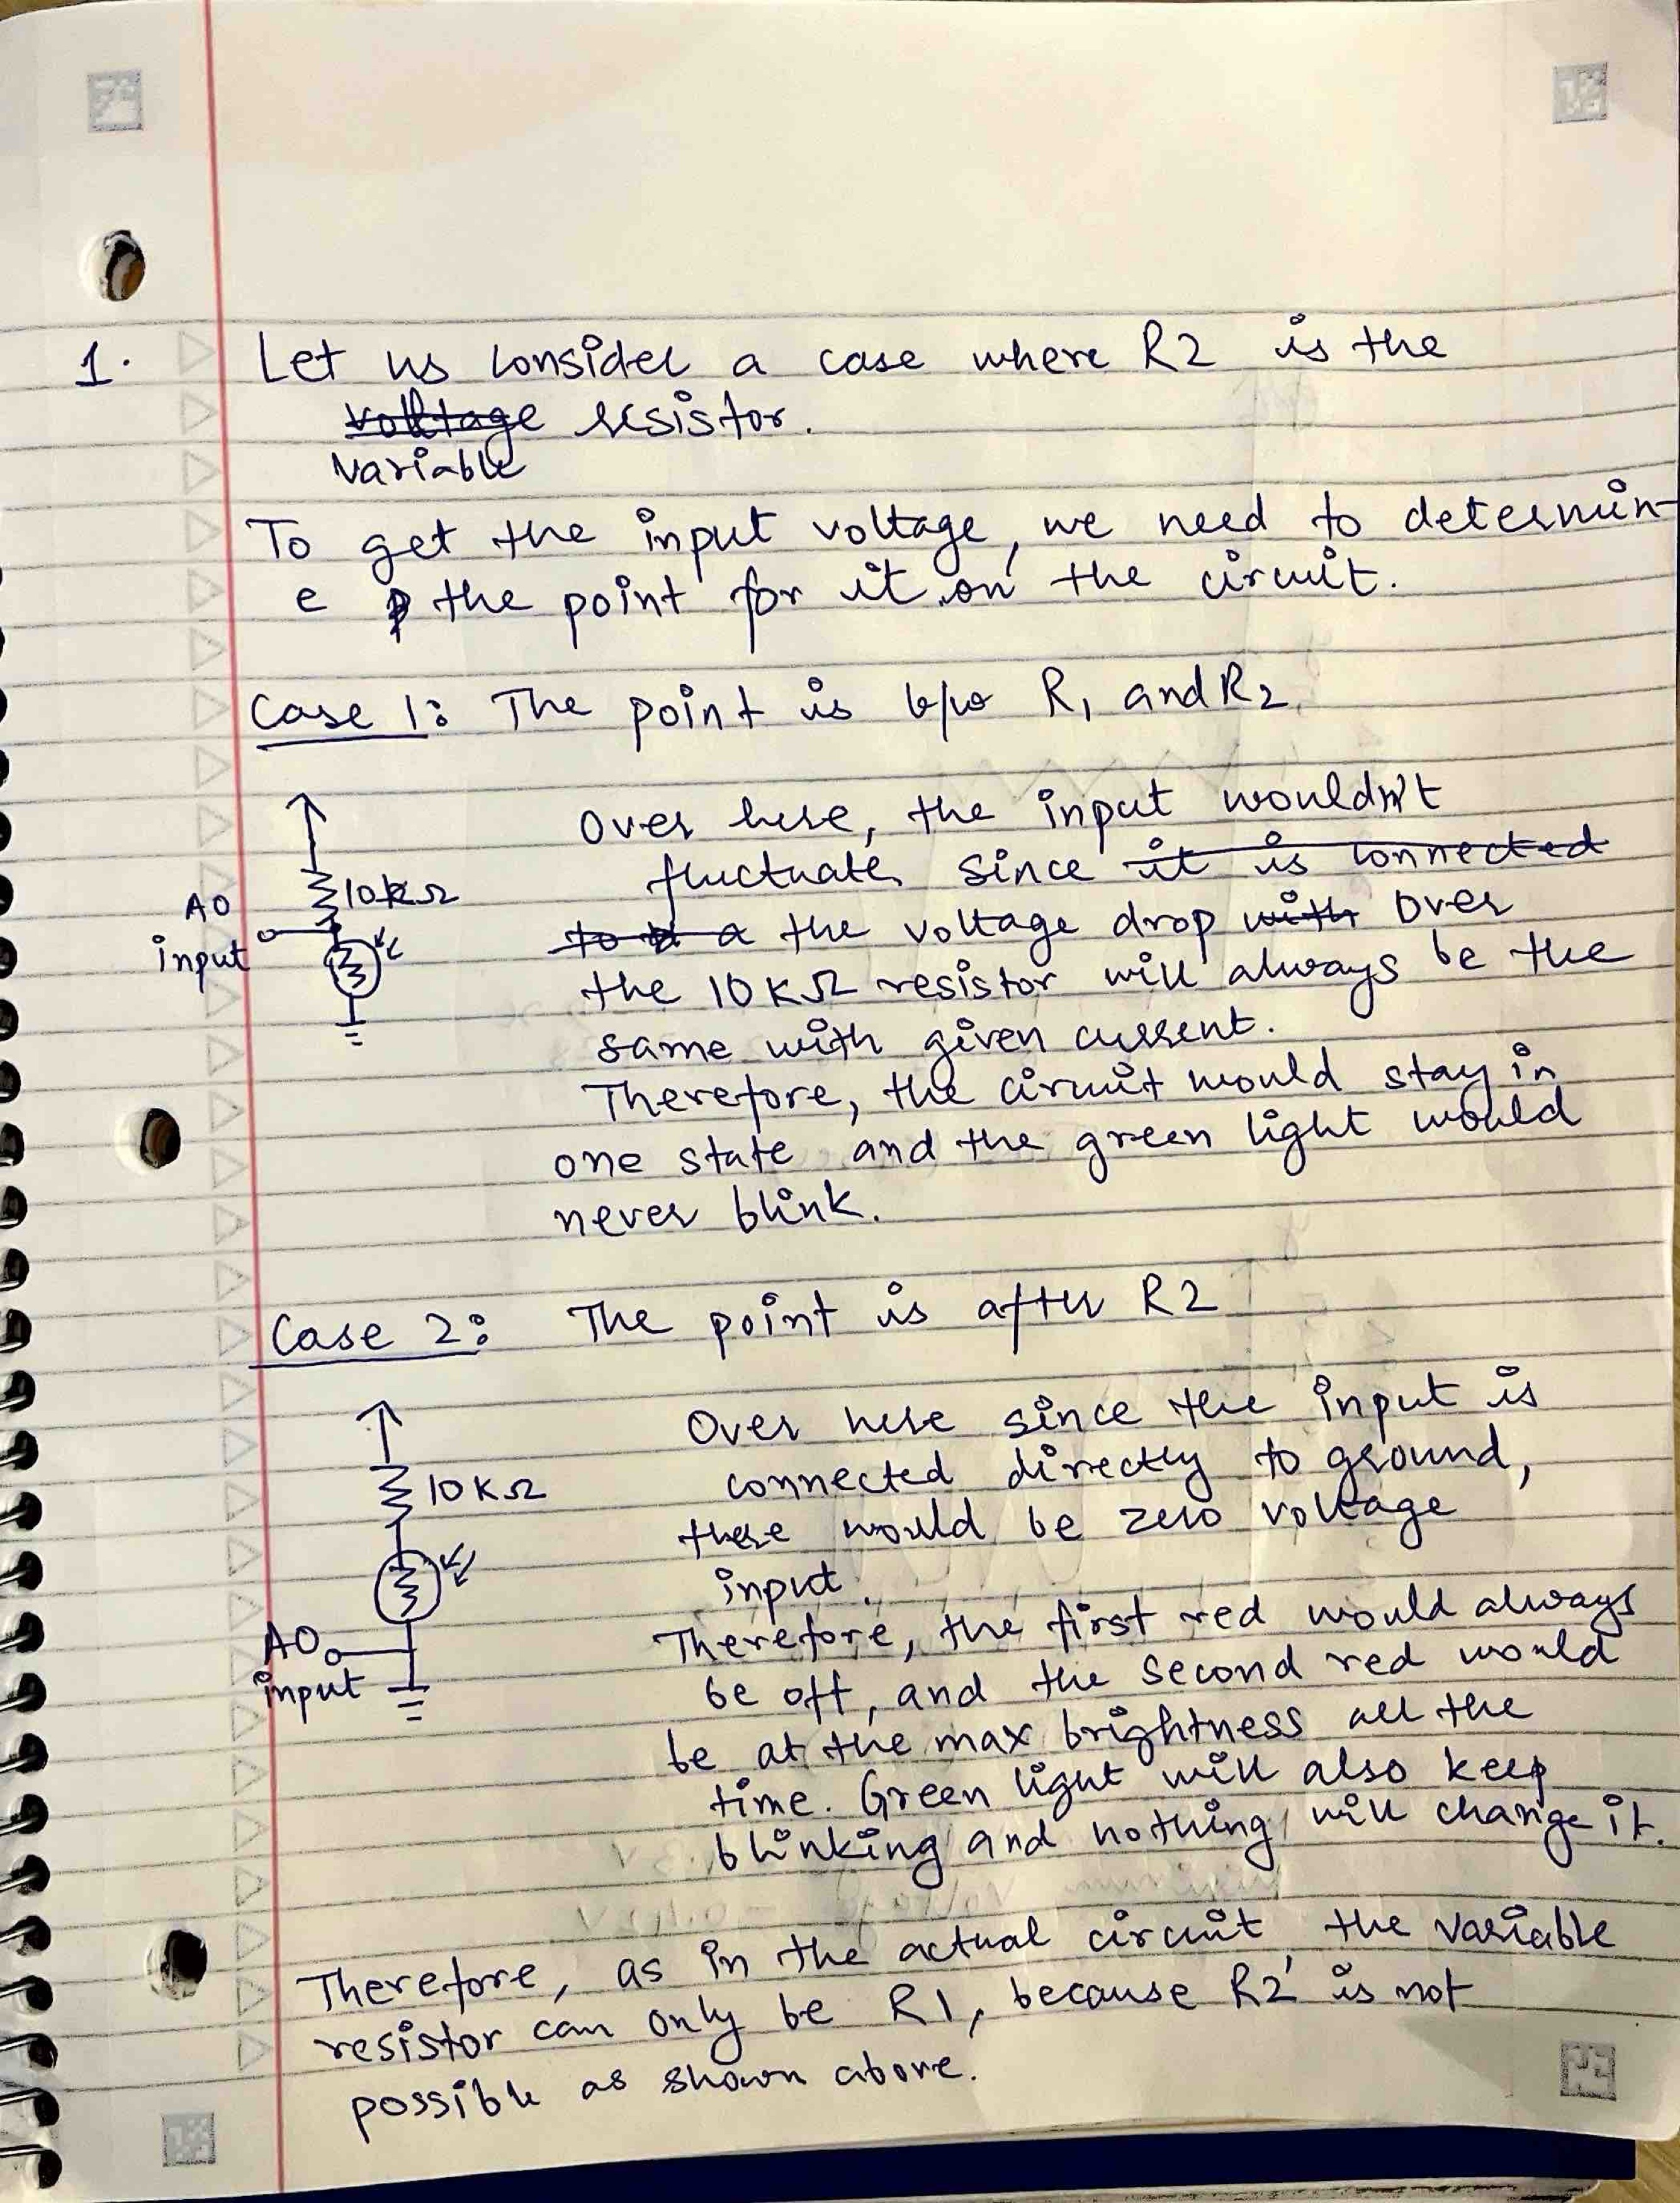 1. Let us consider a case where R2 is the
voltage resistor.
variable
To get the input voltage, we need to determin-
e the point for it on the circuit.
Case 1: The point is b/w R1 and R2.
Over here, the input wouldn't
fluctuate since it is connected
to a the voltage drop with over
10kΩ
A0
input
the 10KΩ resistor will always be the
same with given current.
Therefore, the circuit would stay in
one state and the green light would
never blink.
Case 2: The point is after R2
Over here since the input is
connected directly to ground,
10KΩ
there would be zero voltage
input.
Therefore, the first red would always
A0
input
be off, and the second red would
be at the max brightness all the
time. Green light will also keep
blinking and nothing will change it.
Therefore, as in the actual circuit, the variable
resistor can only be R1, because R2 is not
possible as shown above.